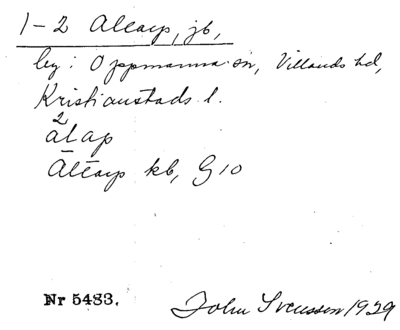 1-2 Altarp, jb,
by i Oppmanna sn, Villands hd,
Kristianstads l.
2
ālap
Āltarp kb, G 10
Nr 5483.
John Svensson 1929